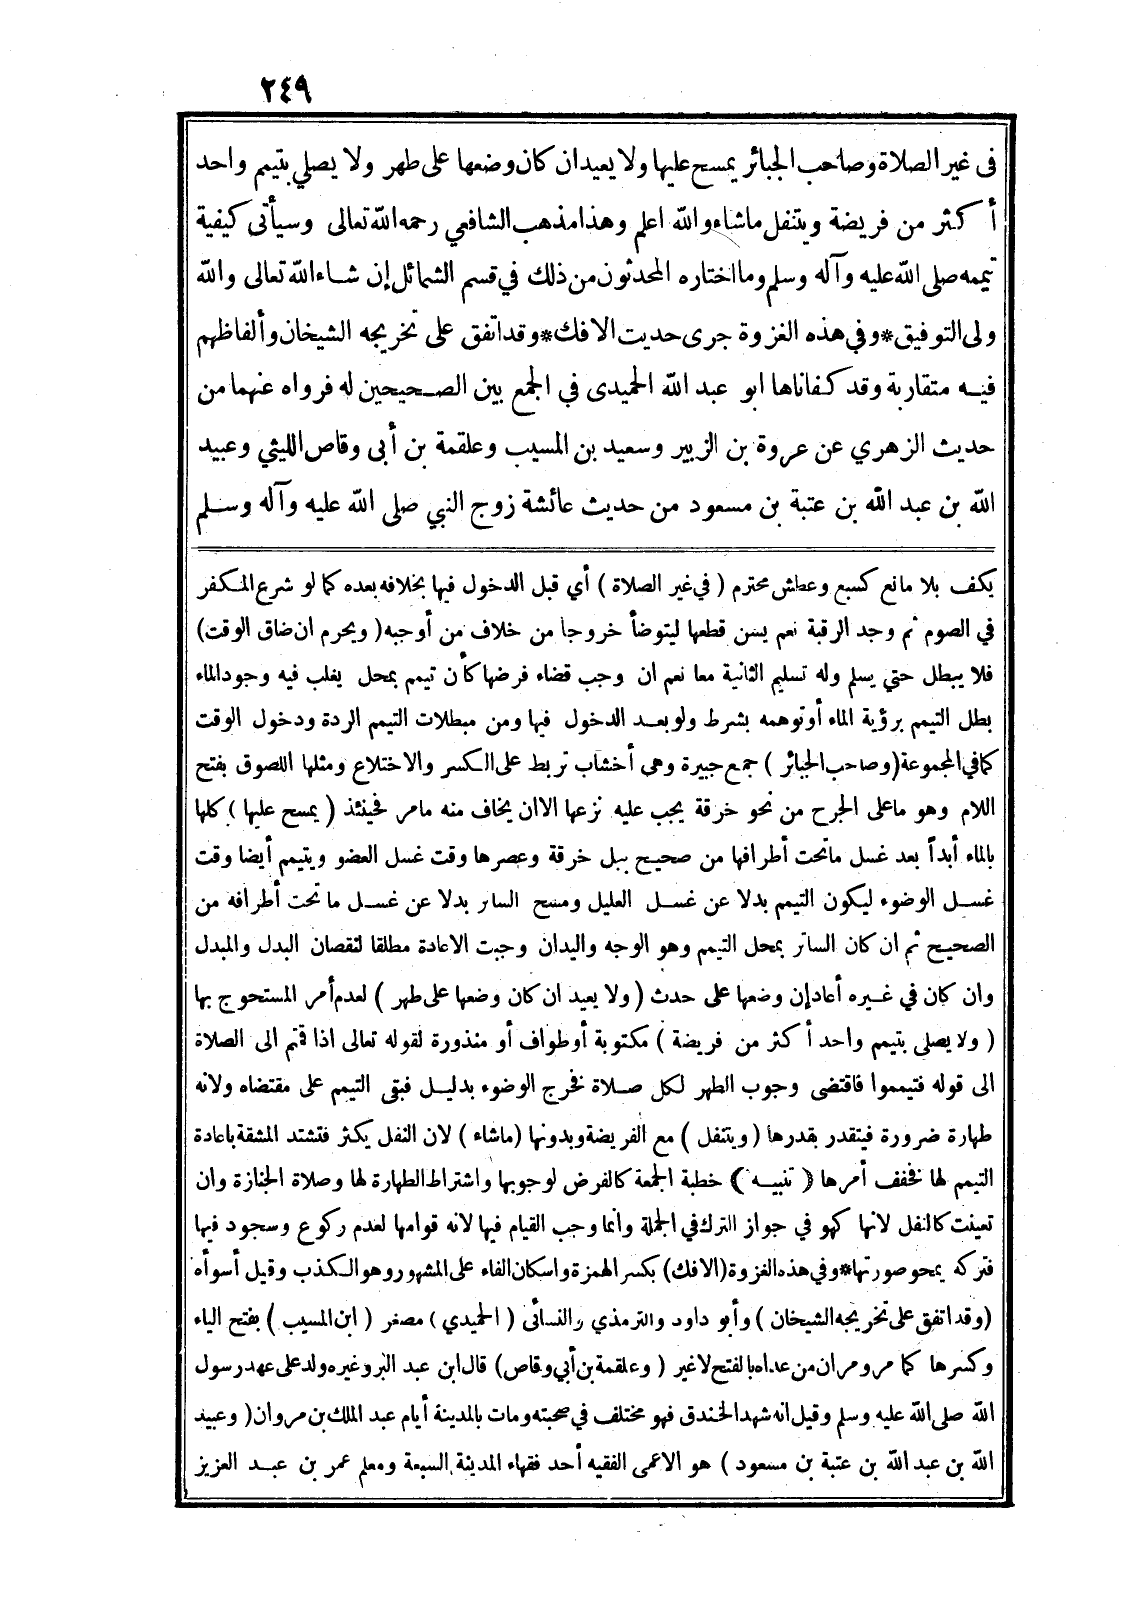 ٢٤٩
فى غير الصلاة وصاحب الجبائر يمسح عليها ولا يعيدان كان وضعها على طهر ولا يصلي بتيمم واحد
أكثر من فريضة ويتنفل ماشاء والله اعلم وهذا مذهب الشافعي رحمه الله تعالى وسيأتى كيفية
تيممه صلى الله عليه وآله وسلم وما اختاره المحدثون من ذلك في قسم الشمائل إن شاء الله تعالى والله
ولى التوفيق*وفي هذه الغزوة جرى حديث الافك*وقد اتفق على تخريجه الشيخان وألفاظهم
فيه متقاربة وقد كفاناها ابو عبد الله الحميدى في الجمع بين الصحيحين له فرواه عنهما من
حديث الزهري عن عروة بن الزبير وسعيد بن المسيب وعلقمة بن أبى وقاص الليثي وعبيد
الله بن عبد الله بن عتبة بن مسعود من حديث عائشة زوج النبي صلى الله عليه وآله وسلم
يكف بلا مانع كسبع وعطش محترم ( في غير الصلاة ) أي قبل الدخول فيها بخلافه بعده كما لو شرع المكفر
في الصوم ثم وجد الرقبة نعم يسن قطعها ليتوضأ خروجا من خلاف من أوجبه ( ويحرم ان ضاق الوقت)
فلا يبطل حتي يسلم وله تسليم الثانية معا نعم ان وجب قضاء فرضها كأن تيمم بمحل يغلب فيه وجود الماء
بطل التيمم برؤية الماء أوتوهمه بشرط ولو بعد الدخول فيها ومن مبطلات التيمم الردة ودخول الوقت
كما في المجموعة (وصاحب الجبائر ) جمع جبيرة وهي أخشاب تربط على الكسر والاختلاع ومثلها اللصوق بفتح
اللام وهو ماعلى الجرح من نحو خرقة يجب عليه نزعها الا ان يخاف منه مامر فحينئذ ( يمسح عليها ) كلها
بالماء أبداً بعد غسل ماتحت أطرافها من صحيح ببل خرقة وعصرها وقت غسل العضو ويتيمم أيضا وقت
غسل الوضوء ليكون التيمم بدلا عن غسل العليل ومسح الساتر بدلا عن غسل ما تحت أطرافه من
الصحيح ثم ان كان الساتر بمحل التيمم وهو الوجه واليدان وجبت الاعادة مطلقا لنقصان البدل والمبدل
وان كان في غيره أعاد إن وضعها على حدث ( ولا يعيد ان كان وضعها على طهر ) لعدم أمر المستحوج بها
( ولا يصلى بتيمم واحد أكثر من فريضة ) مكتوبة أوطواف أو منذورة لقوله تعالى اذا قمتم الى الصلاة
الى قوله فتيمموا فاقتضى وجوب الطهر لكل صلاة فخرج الوضوء بدليل فبقى التيمم على مقتضاه ولانه
طهارة ضرورة فيتقدر بقدرها ( ويتنفل ) مع الفريضة وبدونها (ماشاء ) لان النفل يكثر فتشتد المشقة باعادة
التيمم لها فخفف أمرها ( تنبيه ) خطبة الجمعة كالفرض لوجوبها واشتراط الطهارة لها وصلاة الجنازة وان
تعينت كالنفل لانها كهو في جواز الترك في الجملة وانما وجب القيام فيها لانه قوامها لعدم ركوع وسجود فيها
فتركه يمحو صورتها*وفي هذه الغزوة (الافك) بكسر الهمزة واسكان الفاء على المشهور وهو الكذب وقيل أسوأه
(وقد اتفق على تخريجه الشيخان ) وأبو داود والترمذي والنسائى ( الحميدي ) مصغر ( ابن المسيب ) بفتح الياء
وكسرها كما مر ومر ان من عداه بالفتح لاغير ( وعلقمة بن أبي وقاص) قال ابن عبد البر وغيره ولد على عهد رسول
الله صلى الله عليه وسلم وقيل انه شهد الخندق فهو مختلف في صحبته ومات بالمدينة أيام عبد الملك بن مروان ( وعبيد
الله بن عبد الله بن عتبة بن مسعود ) هو الاعمى الفقيه أحد فقهاء المدينة السبعة ومعلم عمر بن عبد العزيز